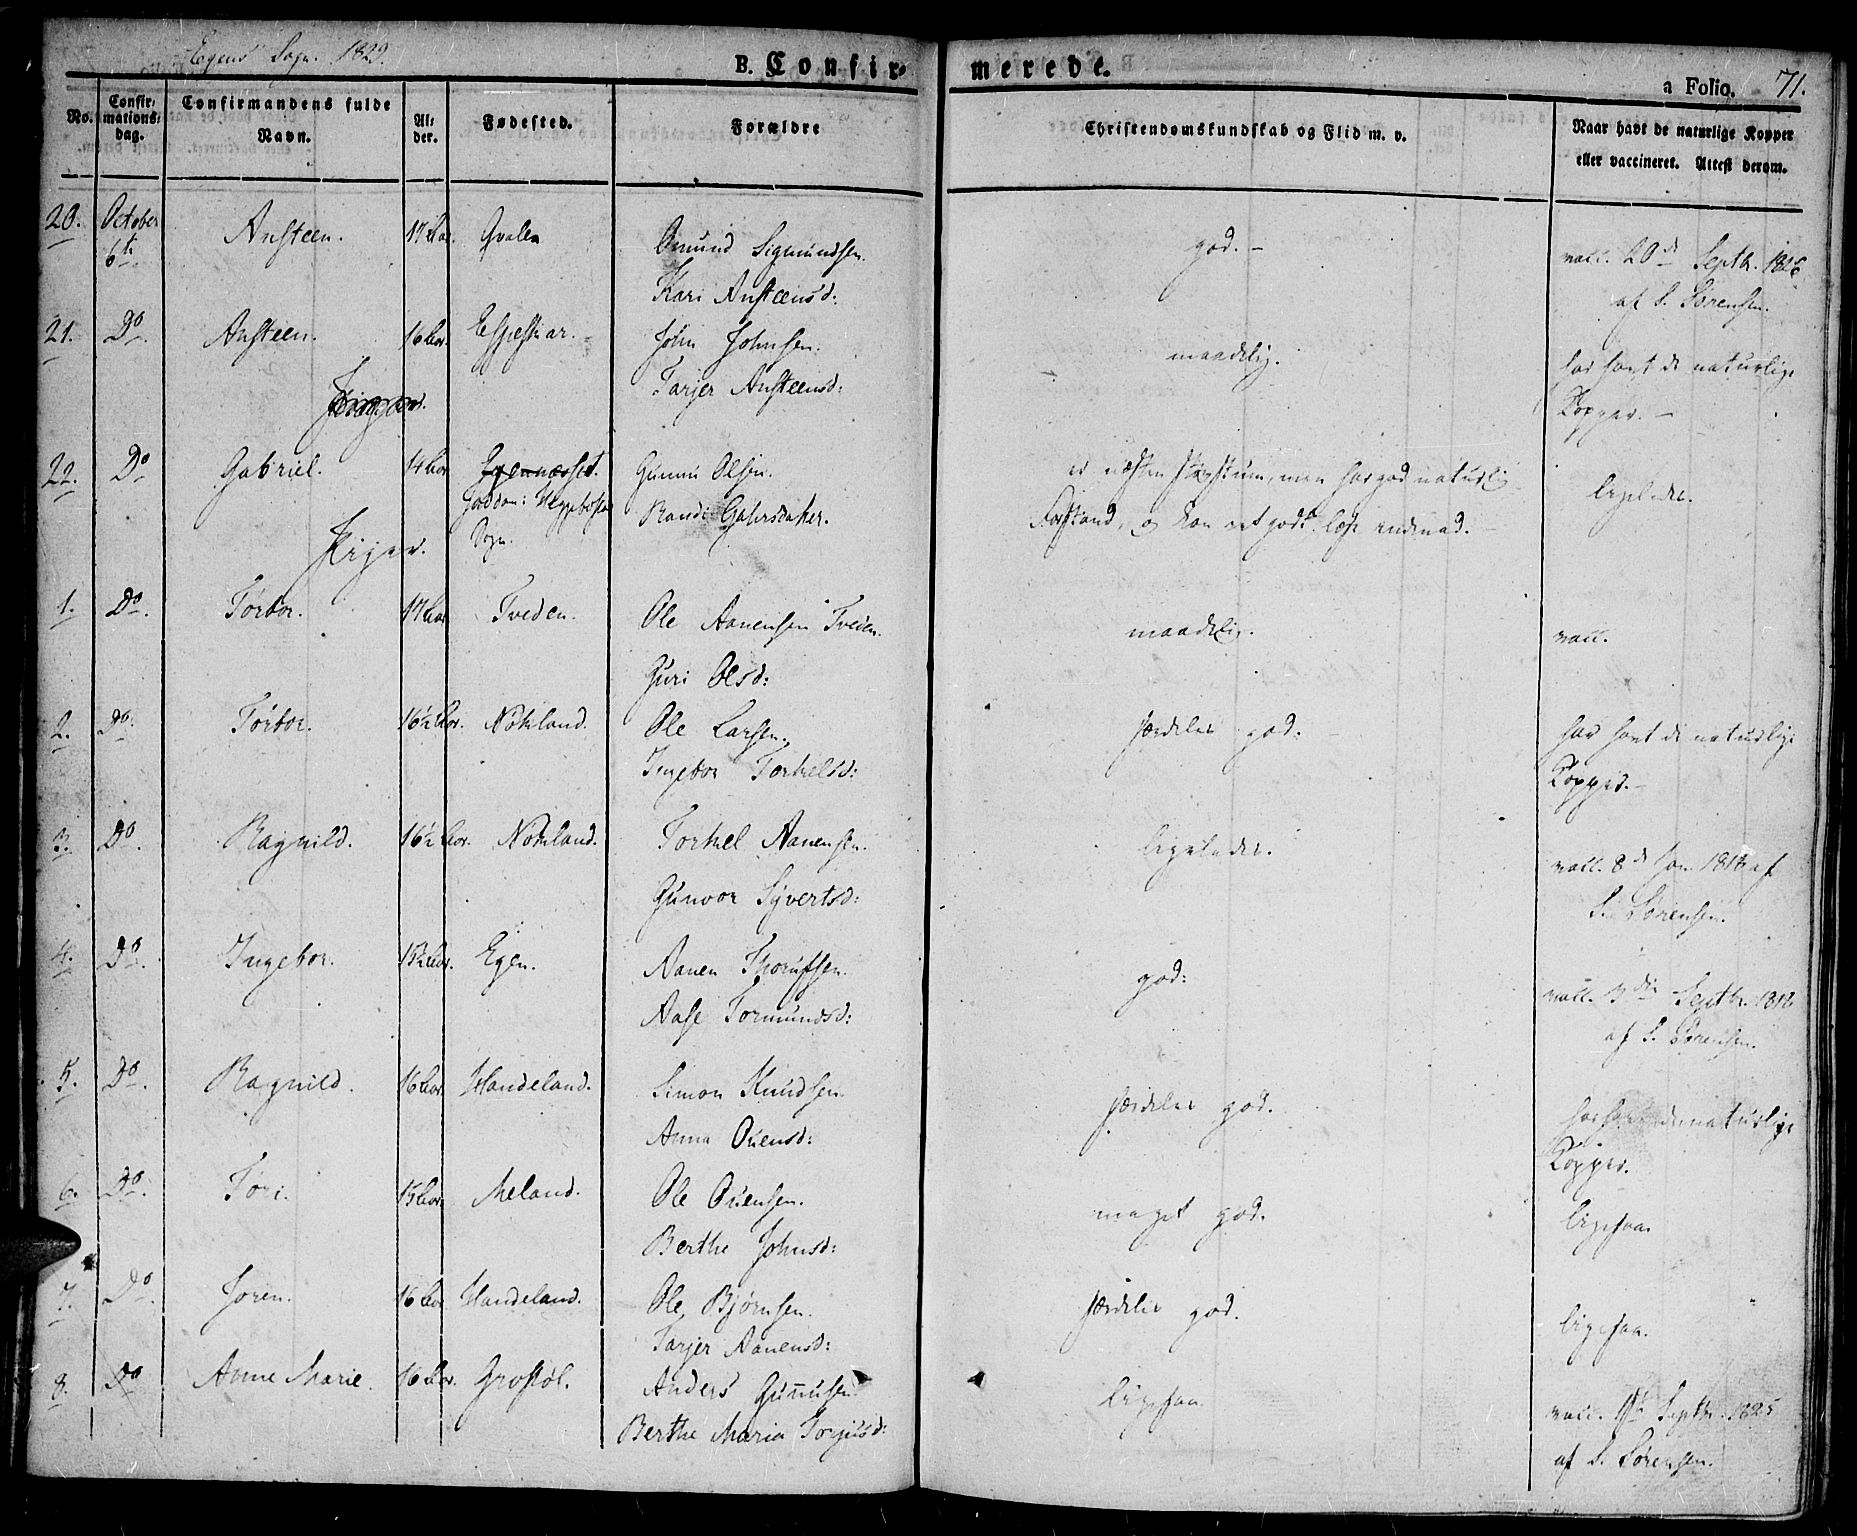 Egens Sogn. 1829.
B. Confirmerede.
a Folio. 71.
No.
Confirmations-dag.
Confirmandens fulde Navn.
Alder.
Fødested.
Forældre
Christendomskundskab og Flid m. v.
Naar havt de naturlige Kopper eller vaccineret. Attest derom.
20. October 6te Ansteen. 17 Aar. Qvalen Omund Sigmundsen. god. – vacc. 20de Septbr.
Kari Ansteensd: af S. Sørensen.
21. Do Ansteen. 16 Aar. John Johnsen. maadelig. har havt de naturlige
Tarjer Ansteensd: Kopper. –
22. Do Gabriel. 14 Aar Gunnu Olsen. er næsten stum, men har god naturlig ligeledes.
Heggebostad Randi
Forstand, og kan ret godt læse indenad.
Sogn.
Piger.
1. Do. Tørbor. 17 Aar Tveden. Ole Aanensen Tveden. maadelig. vacc.
Guri Olsd:
2. Do. Tørbor. 16½ Aar. Nökland. Ole Larsen. særdeles god. har havt de naturlige
Ingebor Torkelsd: Kopper. –
3. Do. Ragnild. 16½ Aar. Nökland. Torkel Aanensen. ligeledes. vacc. 8de Jan. af
Gunvor Syvertsd: S. Sørensen.
4. Do. Ingebor. 15½ Aar. Egen. Aanen god: vacc. Septbr.
Aase Tormundsd: af S. Sørensen.
5. Do. Ragnild. 16 Aar. Handeland. Simon Knudsen. særdeles god. har havt de naturlige
Anna Ouensd: Kopper.
6. Do. Töri. 15 Aar. Meland. Ole Ouensen. meget god. ligesaa
Berthe Johnsd:
7. Do. Joren. 16 Aar Handeland. Ole Bjørnsen. særdeles god. ligesaa.
Tarjer Aanensd:
8. Do Anne Marie. 16 Aar. Grostöl. Anders Gunnusen. ligesaa vacc. Septbr. 1825
Berthe Maria Torjusd: af S. Sørensen.